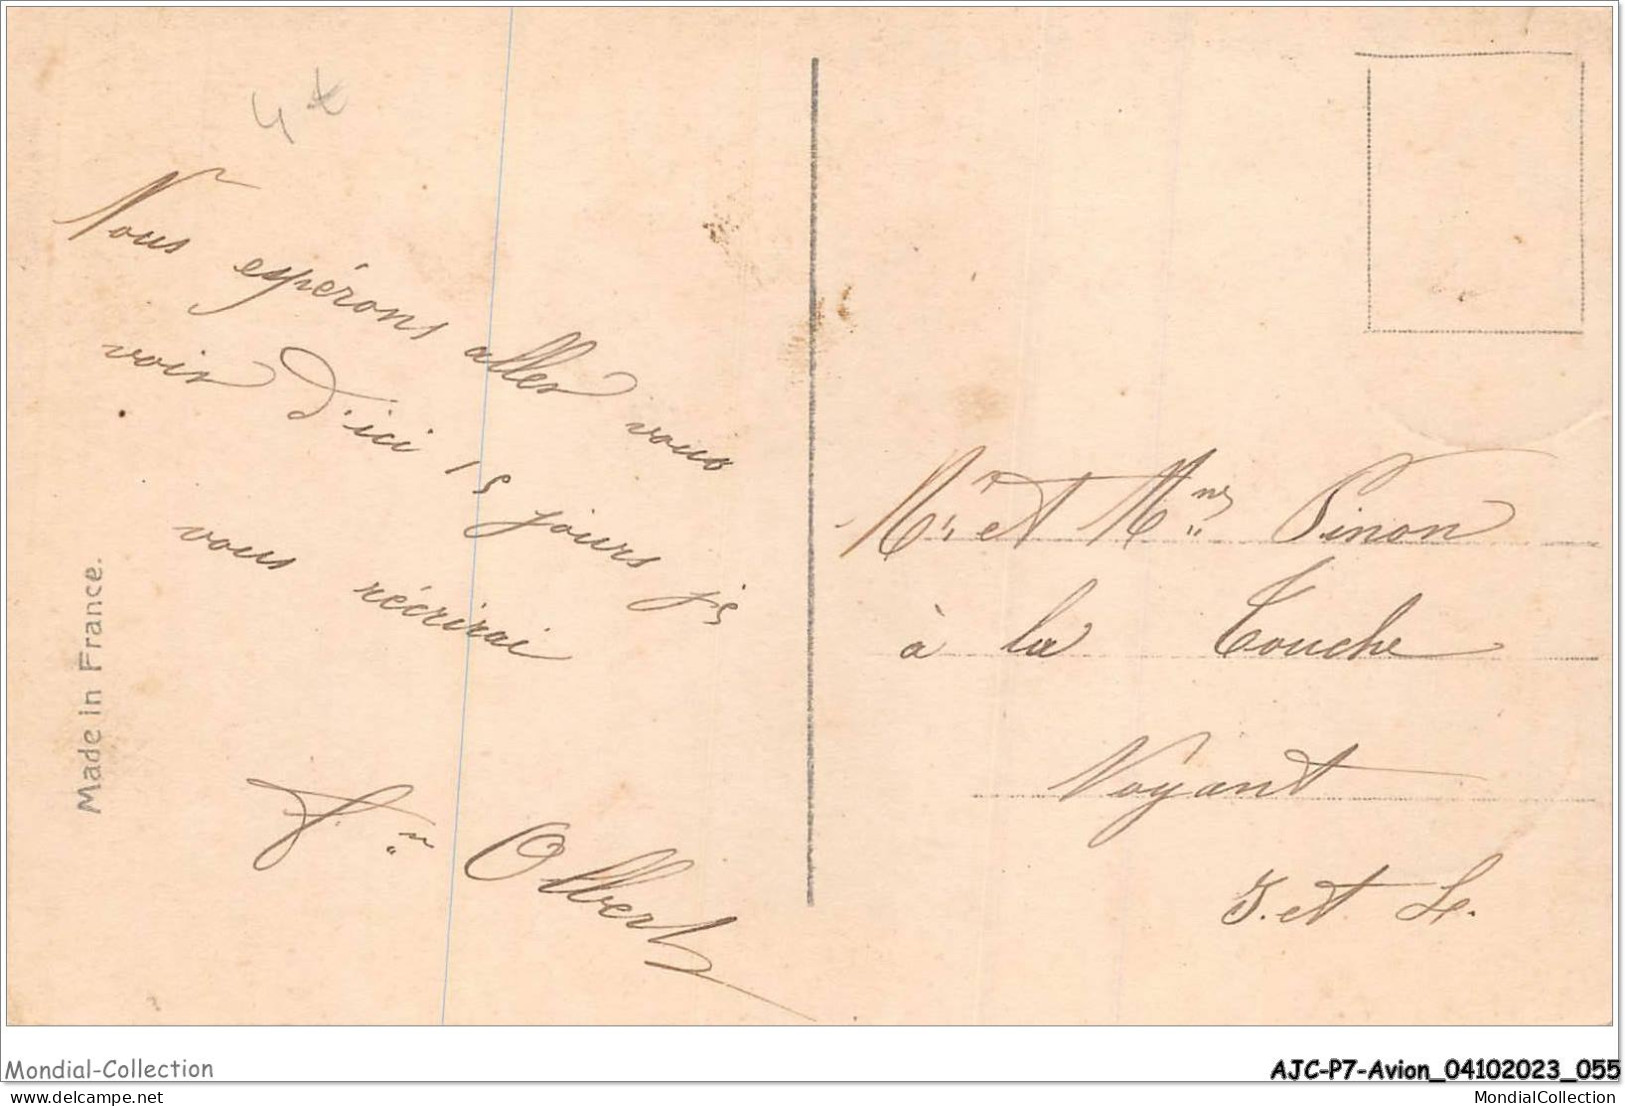 Nous espérons aller vous
voir d'ici 15 jours je
vous récrirai
Olbert
Made in France.
Mr et Mme Pinon
à la Touche
Noyant
I. et L.
Mondial-Collection
AJC-P7-Avion_04102023_055
www.delcampe.net
MondialCollection